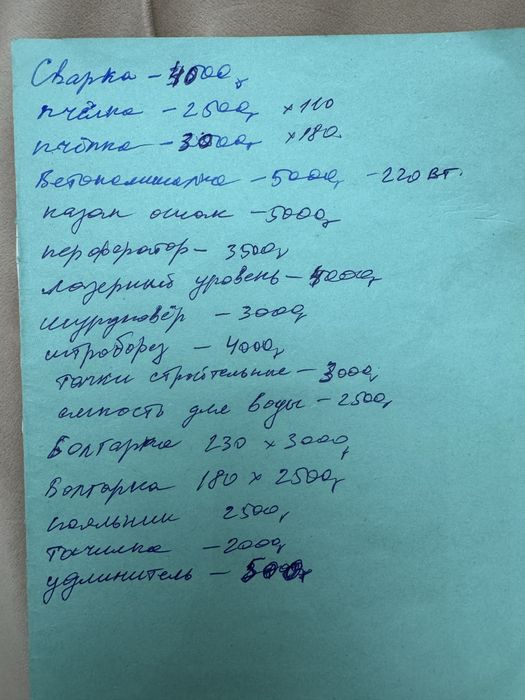 Сварка – 4000
пчёлка – 2500 ×110
пчёлка – 3000 ×180
Бетономишалка – 5000 – 220 вт.
казан очок – 5000
перфератор – 3500
лазерный уровень – 4000
шуруповёр – 3000
штроборез – 4000
тачки строительные – 3000
емкость для воды – 2500
Болгарка 230 × 3000
Болгарка 180 × 2500
паяльник 2500
точилка – 2000
удлинитель – 500